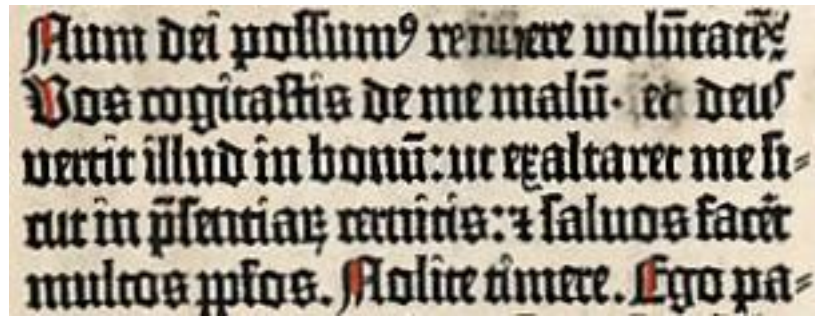 Num dei possumꝰ rennuere volūtatē?
Vos cogitastis de me malū· et deus
vertit illud in bonū: ut exaltaret me si⸗
cut in p̄sentiaꝝ cernitis: ⁊ saluos facēt
multos ppłos. Nolite timere. Ego pa⸗